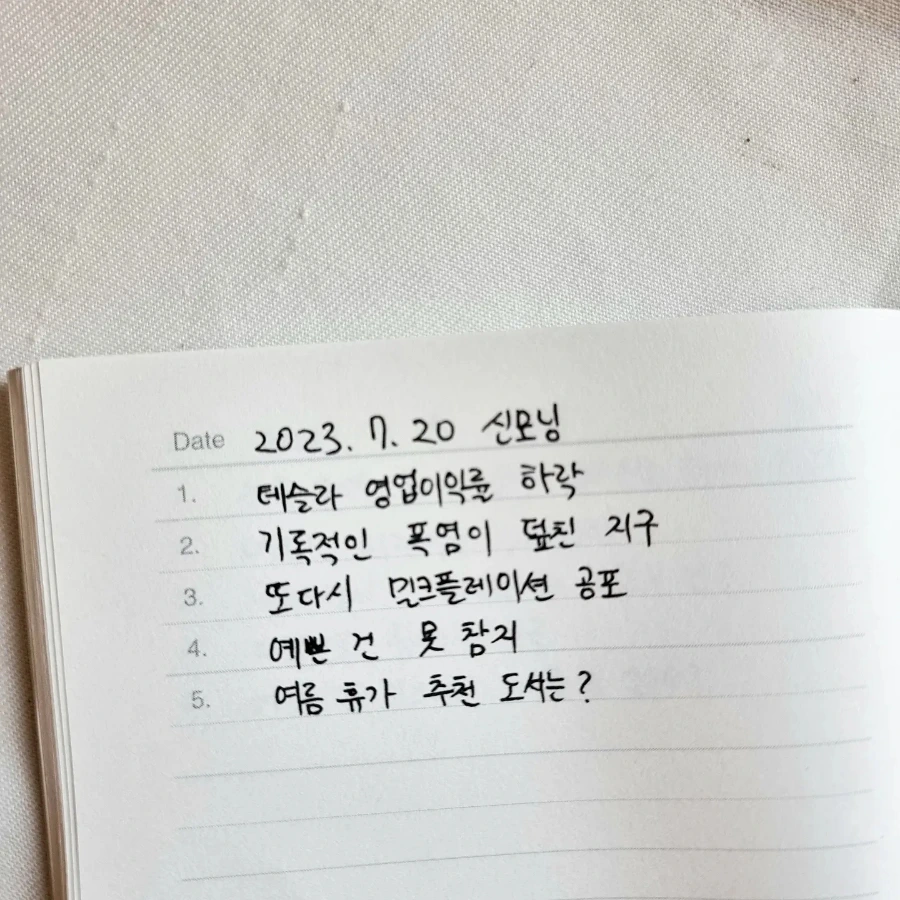 Date 2023. 7. 20 신모닝
1. 테슬라 영업이익률 하락
2. 기록적인 폭염이 덮친 지구
3. 또다시 밀크플레이션 공포
4. 예쁜 건 못 참지
5. 여름 휴가 추천 도서는?